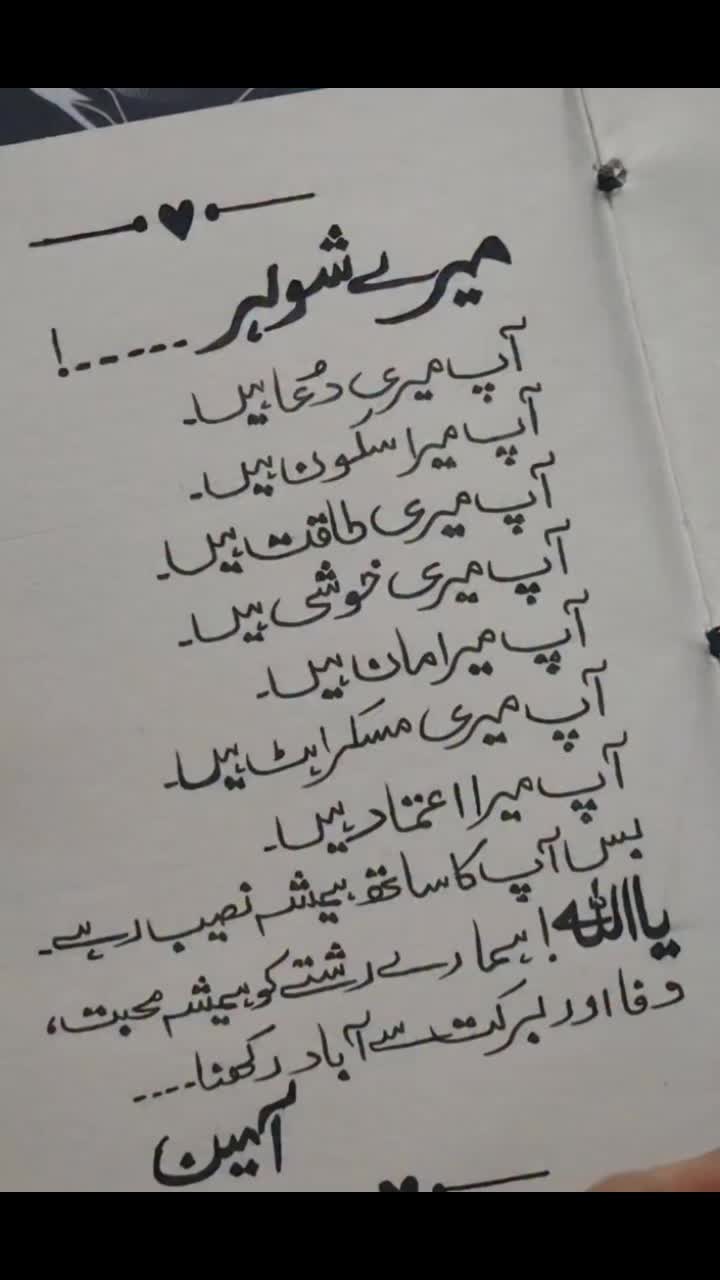 میرے شوہر -----!
آپ میری دُعا ہیں۔
آپ میرا سکون ہیں۔
آپ میری طاقت ہیں۔
آپ میری خوشی ہیں۔
آپ میرا مان ہیں۔
آپ میری مسکراہٹ ہیں۔
آپ میرا اعتماد ہیں۔
بس آپ کا ساتھ ہمیشہ نصیب رہے۔
یااللہ! ہمارے رشتے کو ہمیشہ محبت،
وفا اور برکت سے آباد رکھنا----
آمین